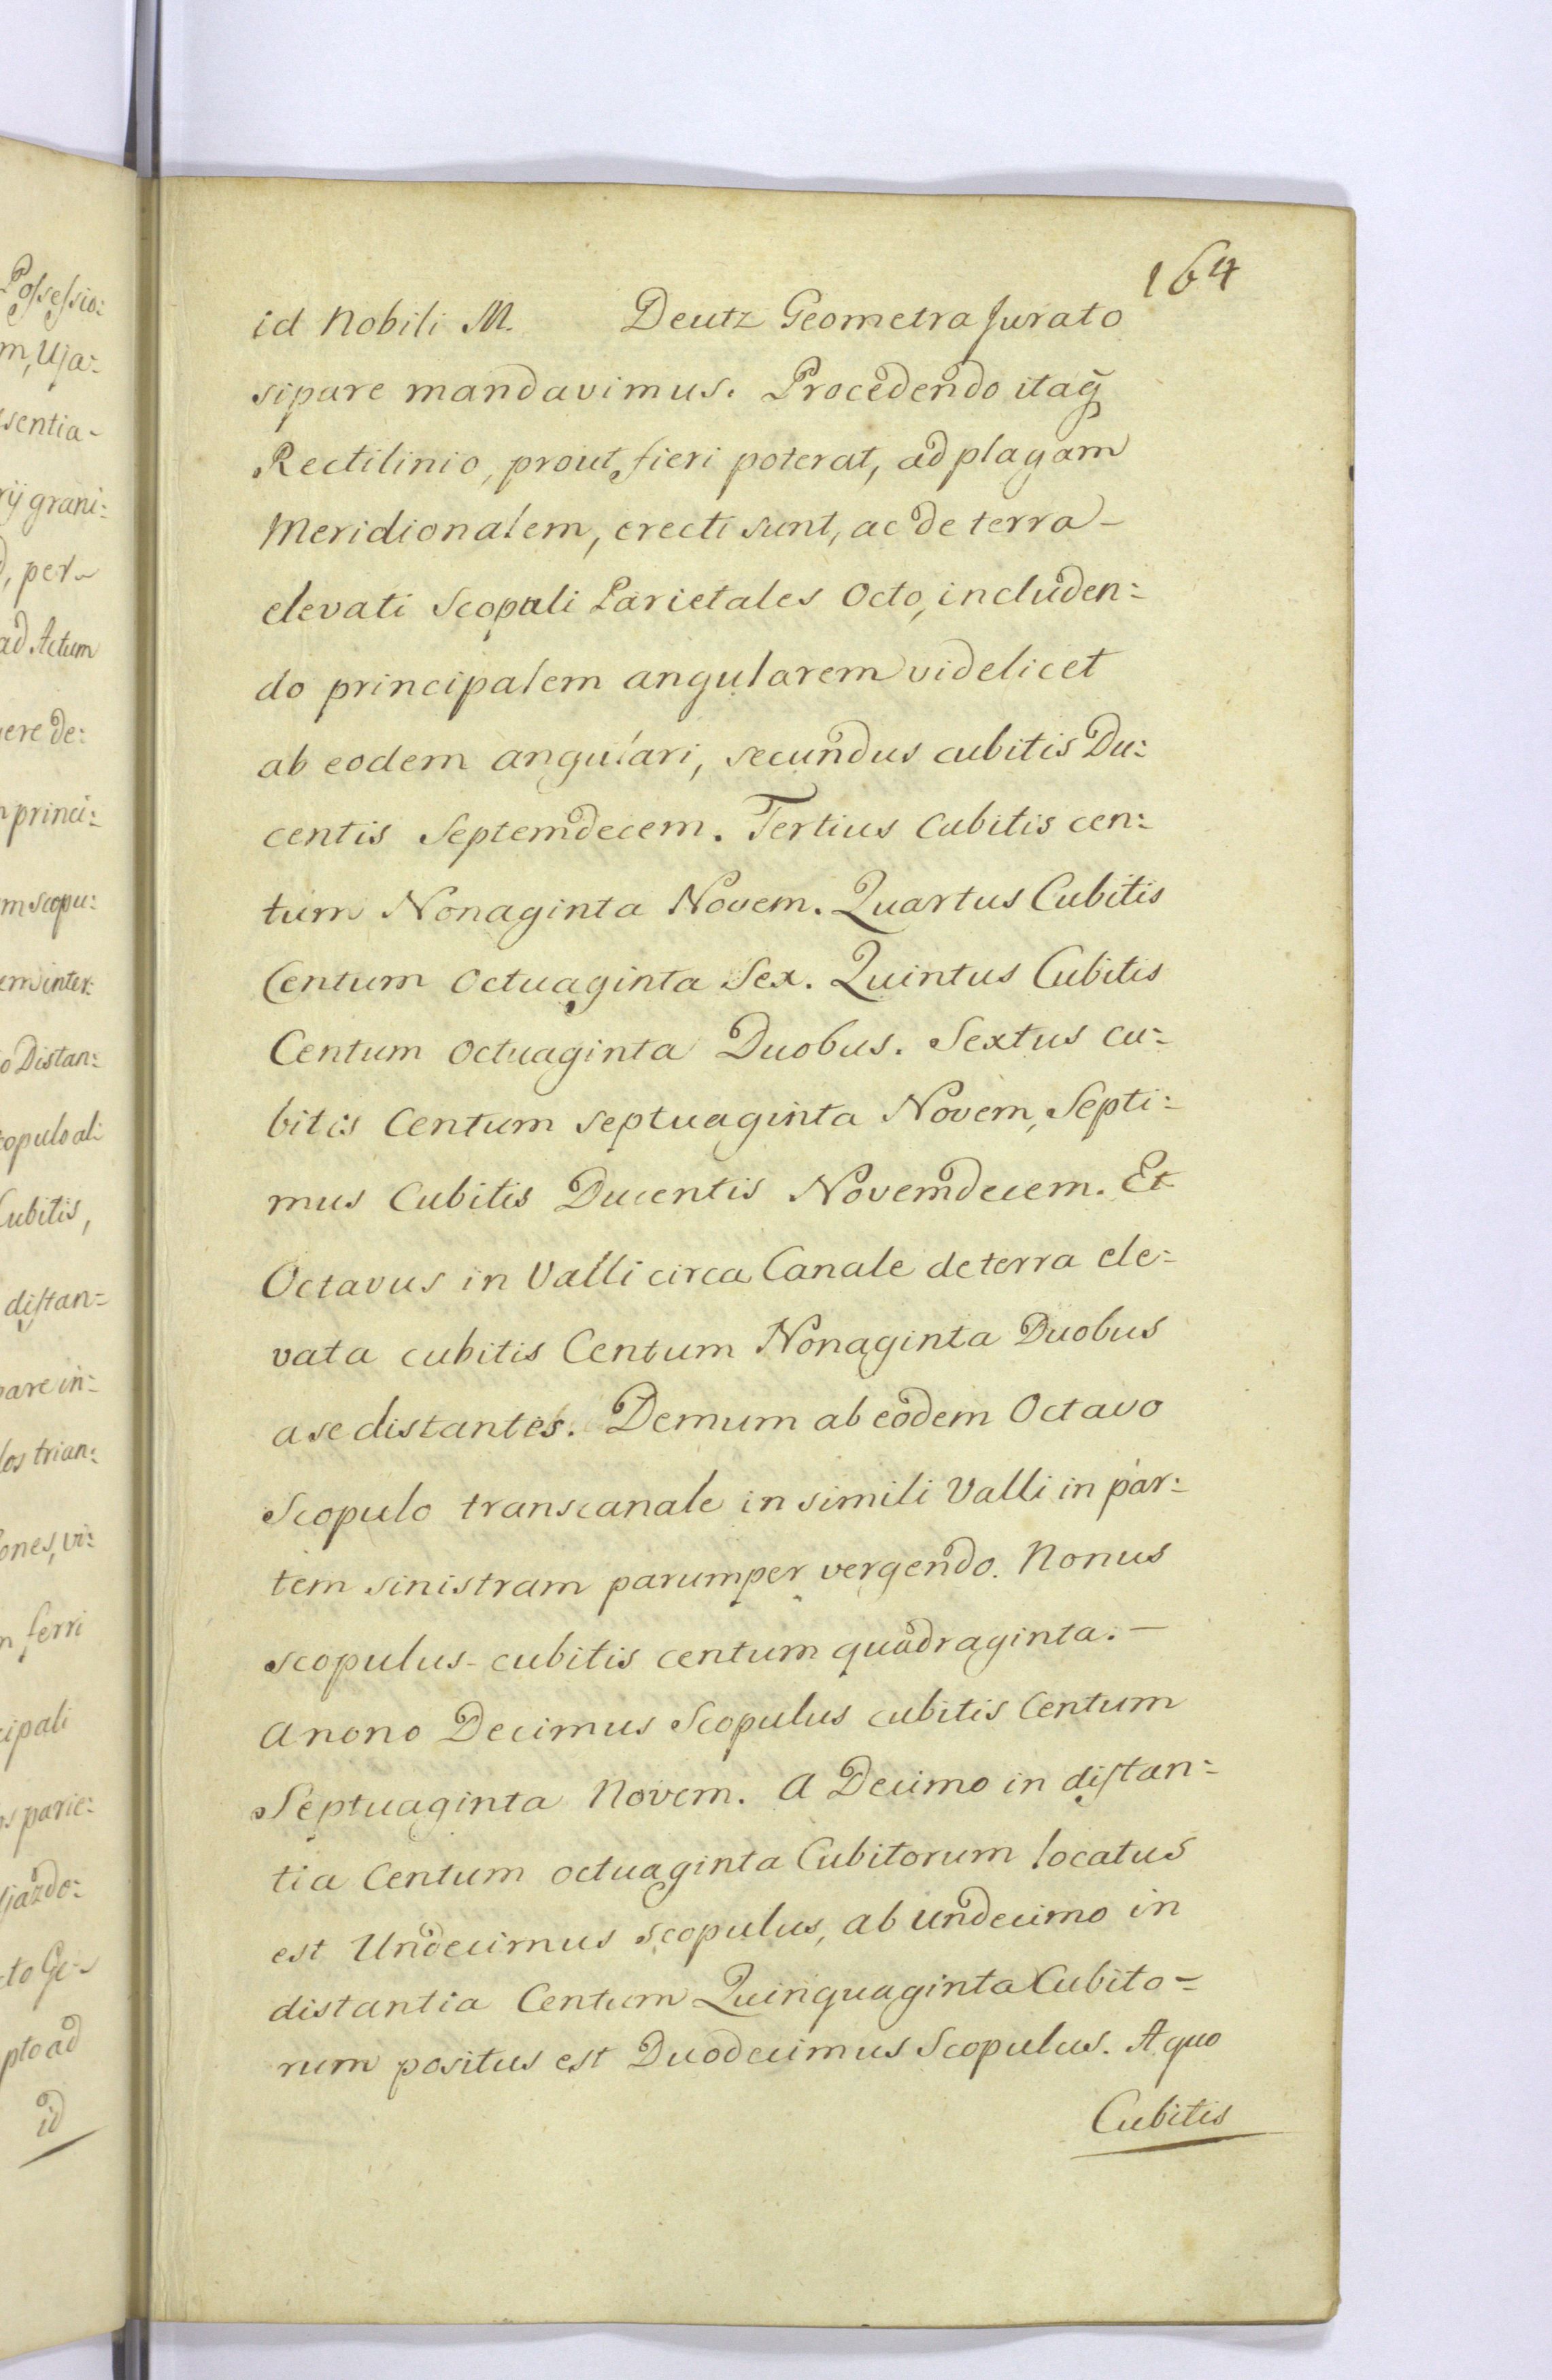 164
id Nobili M. Deutz Geometra Jurato
sipare mandavimus. Procedendo itaq̃
Rectilinio, prout fieri poterat, ad plagam
Meridionalem, erecti sunt, ac de terra-
elevati Scopuli Parietales Octo, includen:
do principalem angularem videlicet
ab eodem angulari, secundus cubitis Du:
centis Septemdecem. Tertius Cubitis cen:
tum Nonaginta Novem. Quartus Cubitis
Centum Octuaginta Sex. Quintus Cubitis
Centum Octuaginta Duobus. Sextus cu:
bitis Centum septuaginta Novem, Septi:
mus Cubitis Ducentis Novemdecem. Et
Octavus in Valli circa Canale de terra ele:
vata cubitis Centum Nonaginta Duobus
a se distantes. Demum ab eodem Octavo
Scopulo transcanale in simili Valli in par:
tem sinistram parumper vergendo. Nonus
scopulus- cubitis centum quadraginta.-
A nono Decimus Scopulus cubitis Centum
Septuaginta Novem. A Decimo in distan:
tia Centum octuaginta Cubitorum locatus
est Undecimus scopulus, ab Undecimo in
distantia Centum Quinquaginta Cubito=
rum positus est Duodecimus Scopulus. A quo
Cubitis
Possessio:
m, Uja:
sentia-
rij grani:
, per
ad Actum
ere de:
princi:
m scopu:
em inter:
o Distan:
copulo ali
Cubitis,
distan=
pare in:
los trian:
ones, vi:
m ferri
cipali
os parie:
jazdo:
to Ge-
pto ad
id